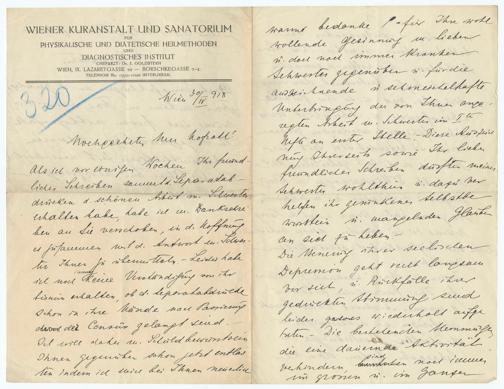 WIENER KURANSTALT UND SANATORIUM
FÜR
PHYSIKALISCHE UND DIÄTETISCHE HEILMETHODEN
UND
DIAGNOSTISCHES INSTITUT
CHEFARZT: Dr. J. GOLDSTEIN
WIEN, IX. LAZARETTGASSE
320
Wien 30/IV 918
Hochgeehrter Herr Hofrat!
Als ich vor einigen Wochen Ihr freund-
liches Schreiben sammt Separatab-
drücken d. schönen Arbeit m. Schwester
erhalten habe, habe ich m. Dankschrei-
ben an Sie verschoben, in d. Hoffnung
es zusammen mit d. Antwort m. Schwe-
ster Ihnen zu übermitteln. Leider habe
ich noch keine Verständigung von ihr
bisnun erhalten, ob d. Separatabdrücke
schon in ihre Hände nach Passierung
der Censur gelangt sind.
Ich will daher m.
Ihnen gegenüber schon jetzt entlas-
ten indem ich Sie bei Ihnen
warmst bedanke für Ihre wohl
wollende Gesinnung m. lieben
u. doch noch immer kranken
Schwester gegenüber u. für die
auszeichnende u. schmeichelhafte
Unterbringung der von Ihnen ange-
regten Arbeit m. Schwester im Iten
Hefte an erster Stelle. Diese
Ihrerseits sowie Ihr liebes
freundliches Schreiben dürften meiner
Schwester wohlthun u. dazu ver-
helfen ihr gesunkenes Selbstbe-
wustsein u. mangelnden Glauben
an sich zu heben.
Die ihrer seelischen
Depression geht recht langsam
vor sich, u. Rückfälle ihrer
gedrückten Stimmung sind
leider wiederholt aufge-
treten. Die bestehenden Hemmungen
die eine dauernde Aktivität
verhindern, sind noch immer
im grossen u. im Ganzen